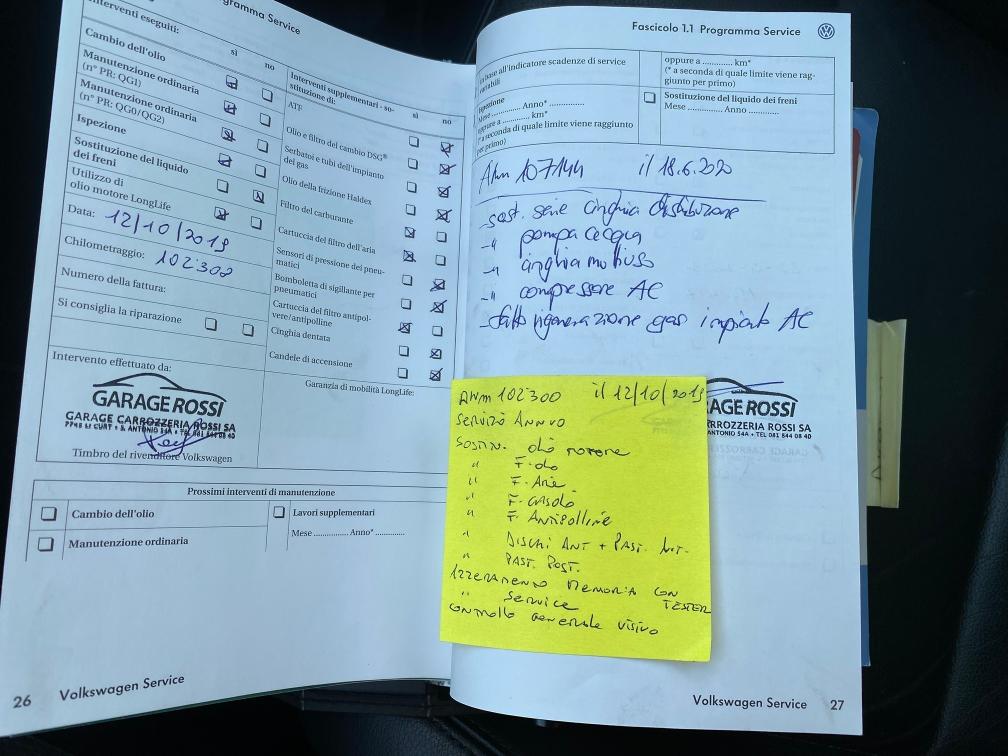 gramma Service
Interventi eseguiti:
sì no
Cambio dell'olio
Manutenzione ordinaria
(n° PR: QG1)
Manutenzione ordinaria
(n° PR: QG0/QG2)
Ispezione
Sostituzione del liquido
dei freni
Utilizzo di
olio motore LongLife
Data: 12/10/2019
Chilometraggio: 102300
Numero della fattura:
Si consiglia la riparazione
Intervento effettuato da:
GARAGE ROSSI
GARAGE CARROZZERIA ROSSI SA
ANTONIO 54A • TEL 081 844 08 40
Timbro del rivenditore Volkswagen
Interventi supplementari - so-
stituzione di:
sì no
ATF
Olio e filtro del cambio DSG®
Serbatoi e tubi dell'impianto
del gas
Olio della frizione Haldex
Filtro del carburante
Cartuccia del filtro dell'aria
Sensori di pressione dei pneu-
matici
Bomboletta di sigillante per
pneumatici
Cartuccia del filtro antipol-
vere/antipolline
Cinghia dentata
Candele di accensione
Garanzia di mobilità LongLife:
Prossimi interventi di manutenzione
Cambio dell'olio
Manutenzione ordinaria
Lavori supplementari
Mese .............. Anno* ..............
26 Volkswagen Service
Fascicolo 1.1 Programma Service
in base all'indicatore scadenze di service
variabili
Ispezione
Mese .............. Anno* ..............
oppure a .............. km*
(* a seconda di quale limite viene raggiunto
per primo)
oppure a ............ km*
(* a seconda di quale limite viene rag-
giunto per primo)
Sostituzione del liquido dei freni
Mese ............ Anno ............
107144 il 18.6.2020
sost. serie cinghia distribuzione
-"- pompa acqua
-"- cinghia
-"- compressore AC
- fatto rigenerazione gas impianto AC
102300 il 12/10/2019
SERVIZIO ANNUO
olio motore
" F. olio
" F. Aria
" F. GASOLIO
" F. ANTIPOLLINE
" DISCHI ANT + PAST. ANT.
" PAST. POST.
AZZERAMENTO MEMORIA CON TESTER
" SERVICE
CONTROLLO GENERALE VISIVO
GE ROSSI
RROZZERIA ROSSI SA
ANTONIO 54A • TEL 081 844 08 40
Volkswagen Service 27